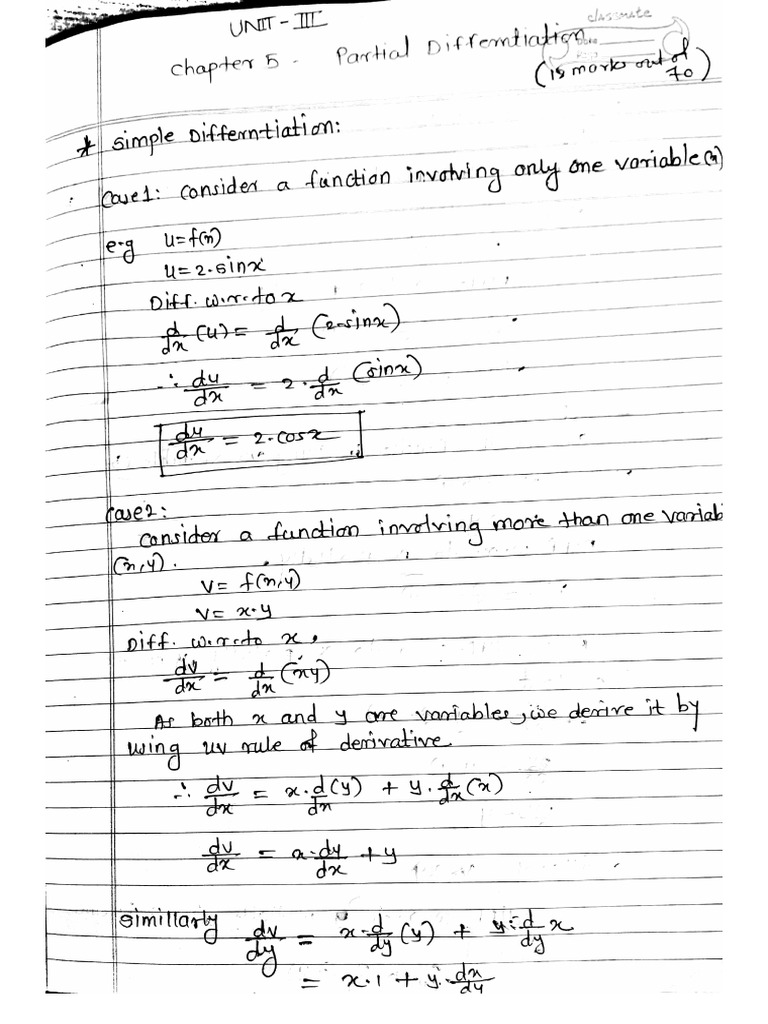 UNIT - III
classmate
Chapter 5 - Partial Differntiation
(15 marks out of 70)
* Simple Differntiation:
Case1: Consider a function involving only one variable(x)
e.g u=f(x)
u=2.sinx
Diff. w.r.to x
d/dx (u) = d/dx (2.sinx)
∴ du/dx = 2. d/dx (sinx)
du/dx = 2.cosx
Case2:
Consider a function involving more than one variab
(x,y).
v= f(x,y)
v= x.y
Diff. w.r.to x,
dv/dx = d/dx (xy)
As both x and y are variables, we derive it by
using uv rule of derivative.
∴ dv/dx = x. d/dx (y) + y. d/dx (x)
dv/dx = x. dy/dx + y
Simillarly dv/dy = x. d/dy (y) + y. d/dy x
= x.1 + y. dx/dy